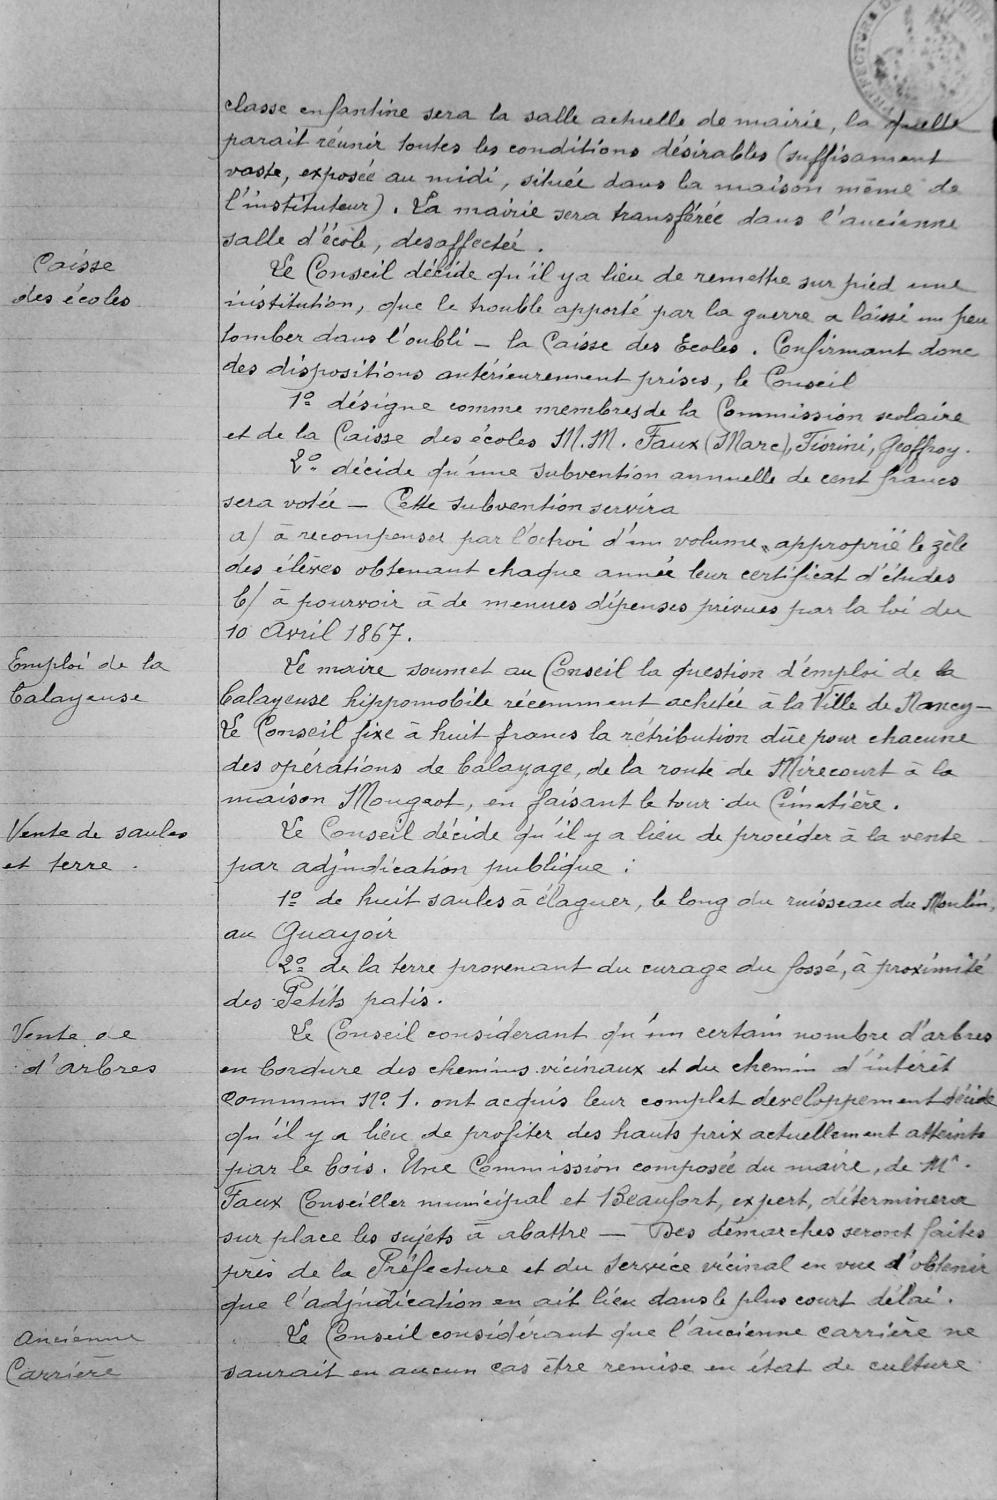 classe enfantine sera la salle actuelle de mairie, la quelle
parait réunir toutes les conditions désirables (suffisament
vaste, exposée au midi, située dans la maison même de
l'instituteur). La mairie sera transférée dans l'ancienne
salle d'école, desaffectée.
Caisse
des écoles
Le Conseil décide qu'il y a lieu de remettre sur pied une
institution, que le trouble apporté par la guerre a laissé un peu
tomber dans l'oubli - la Caisse des Ecoles. Confirmant donc
des dispositions antérieurement prises, le Conseil
1º désigne comme membres de la Commission scolaire
et de la Caisse des écoles M.M. Faux (Marc), Fiorini, Geoffroy.
2º décide qu'une subvention annuelle de cent francs
sera votée - Cette subvention servira
a/ à recompenser par l'octroi d'un volume approprié le zèle
des élèves obtenant chaque année leur certificat d'études
b/ à pourvoir à de menues dépenses prévues par la loi du
10 Avril 1867.
Emploi de la
balayeuse
Le maire soumet au Conseil la question d'emploi de la
balayeuse hippomobile récemment achetée à la Ville de Nancy -
Le Conseil fixe à huit francs la rétribution dûe pour chacune
des opérations de balayage, de la route de Mirecourt à la
maison Mougeot, en faisant le tour du Cimetière.
Vente de saules
et terre.
Le Conseil décide qu'il y a lieu de procéder à la vente
par adjudication publique :
1º de huit saules à élaguer, le long du ruisseau du Moulin,
au Guayoir
2º de la terre provenant du curage du fossé, à proximité
des Petits patis.
Vente de
d'arbres
Le Conseil considerant qu'un certain nombre d'arbres
en bordure des chemins vicinaux et du chemin d'intérêt
commun Nº 1. ont acquis leur complet développement décide
qu'il y a lieu de profiter des hauts prix actuellement atteints
par le bois. Une Commission composée du maire, de Mr.
Faux Conseiller municipal et Beaufort, expert, déterminera
sur place les sujets à abattre - Des démarches seront faites
près de la Préfecture et du service vicinal en vue d'obtenir
que l'adjudication en ait lieu dans le plus court délai.
Ancienne
Carrière
Le Conseil considérant que l'ancienne carrière ne
saurait en aucun cas être remise en état de culture